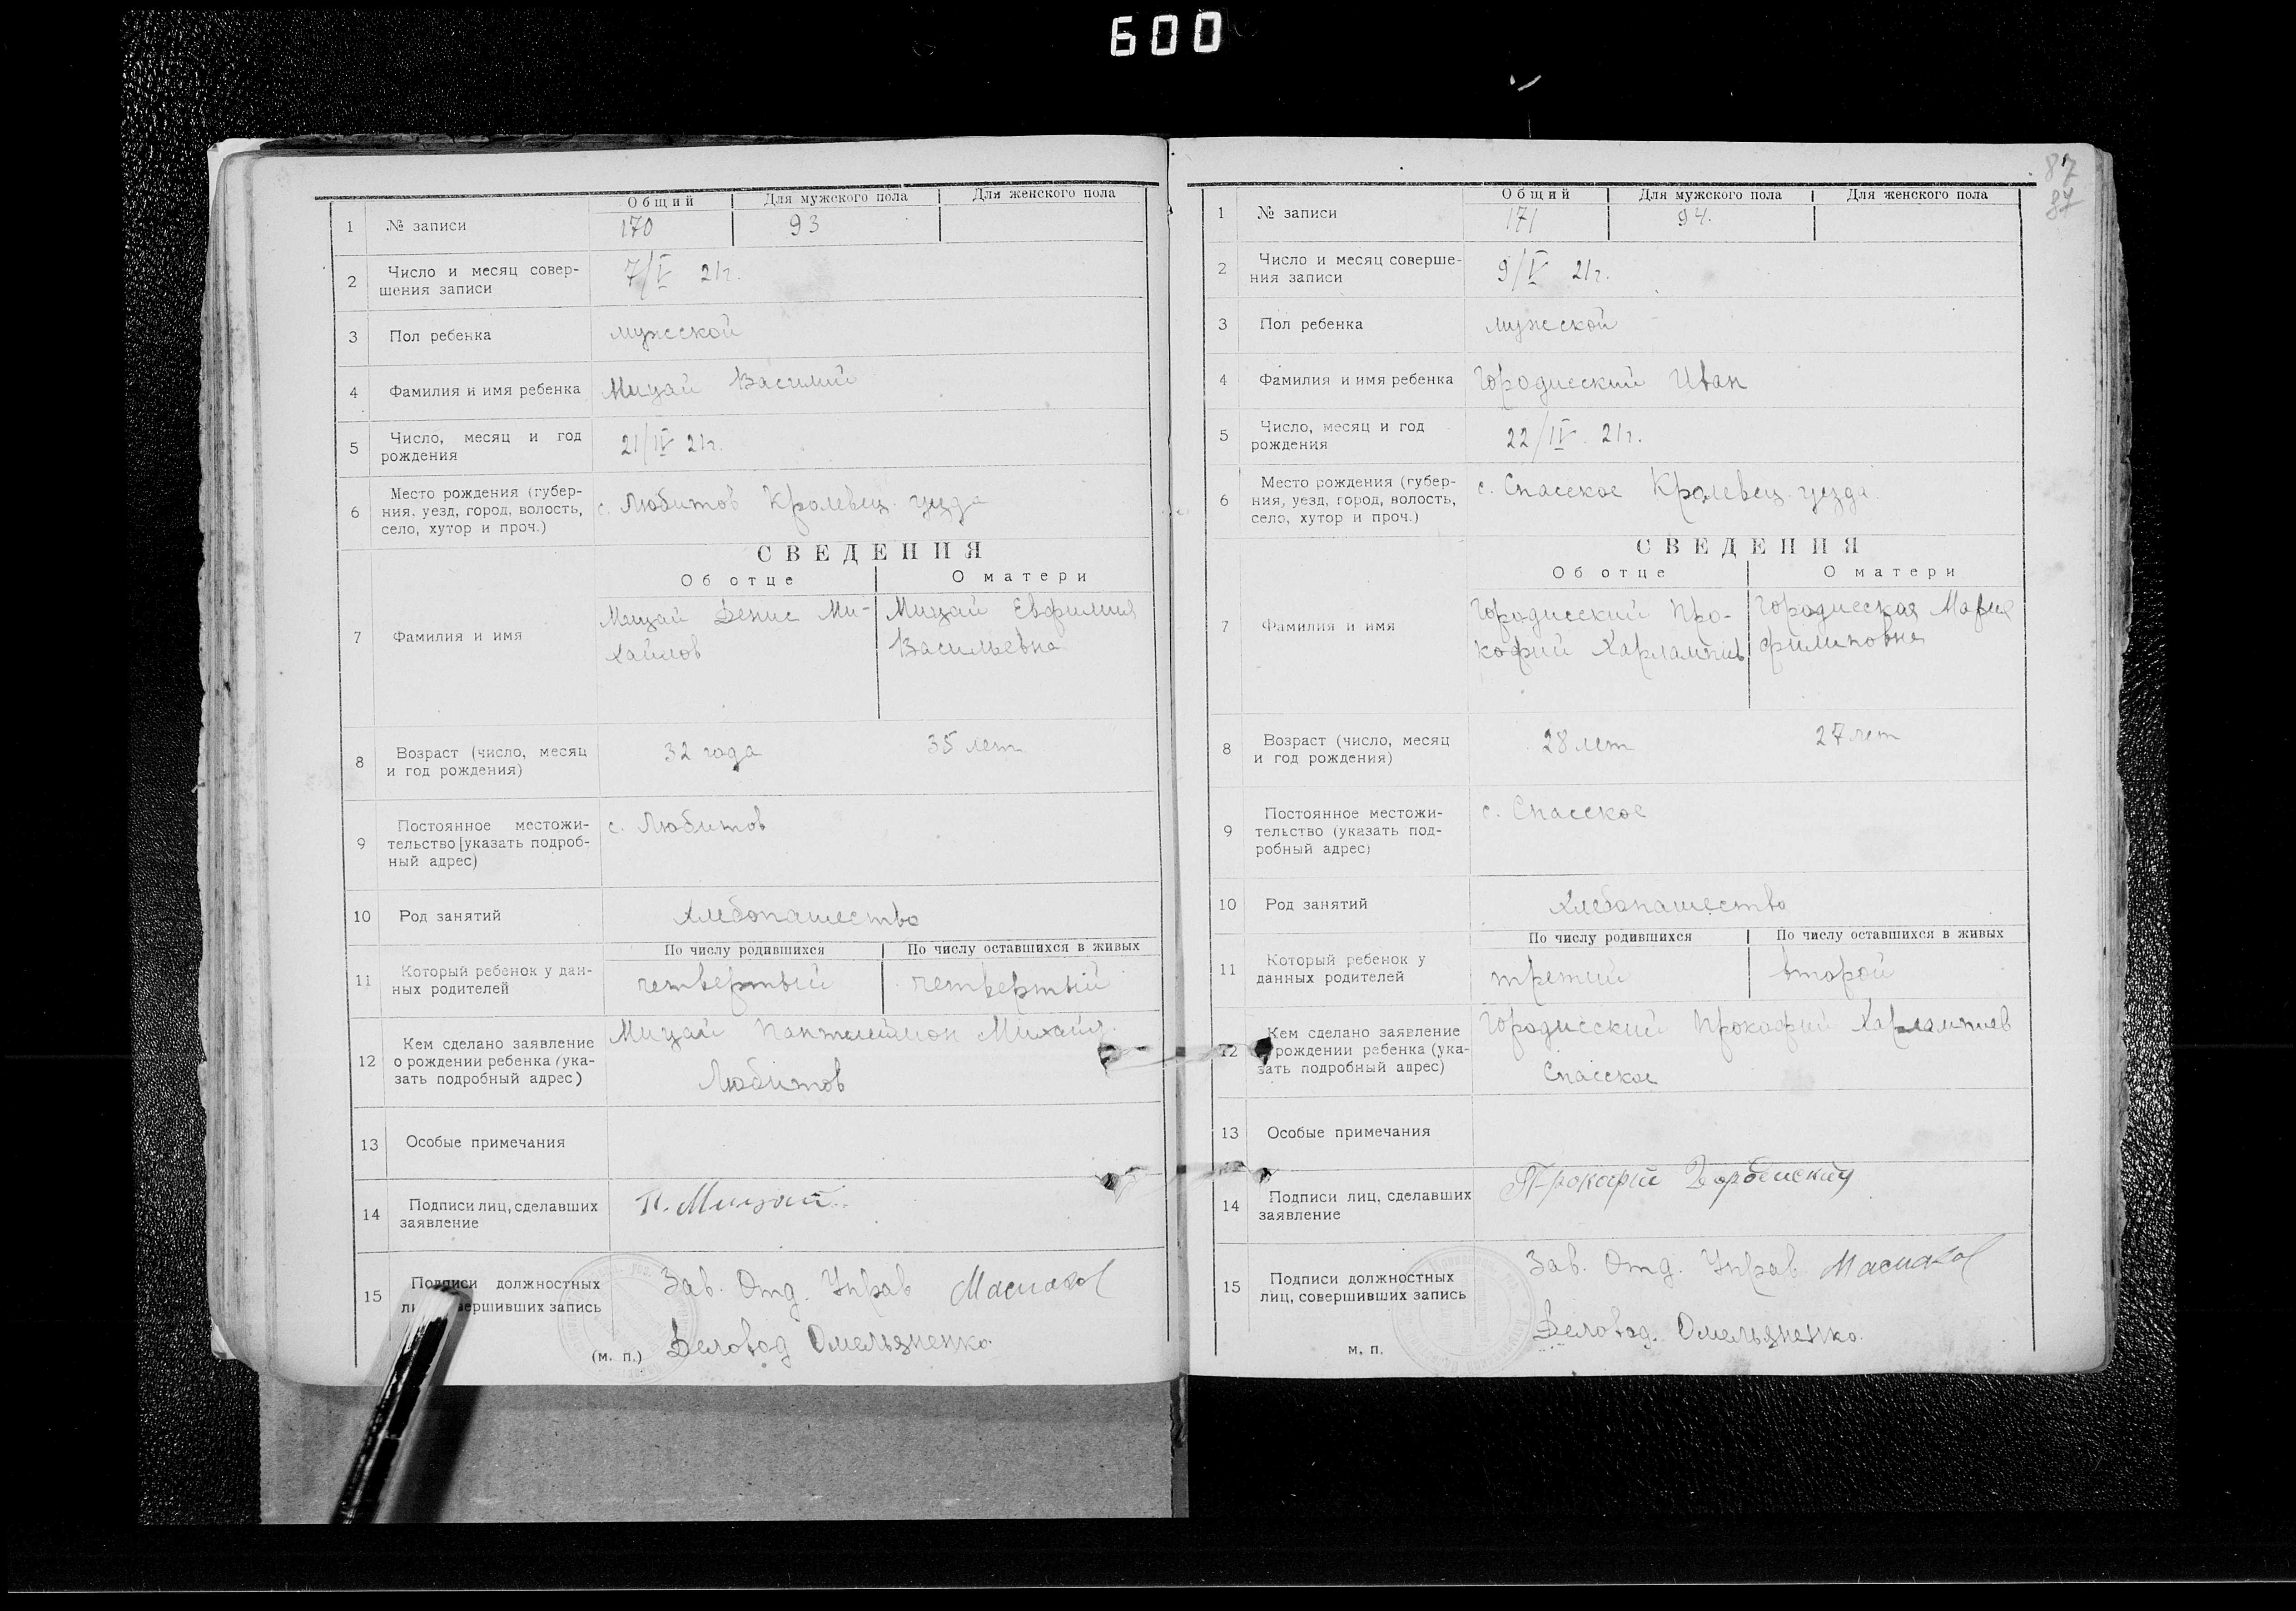 600
Общий Для мужского пола Для женского пола
1 № записи 170 93
2 Число и месяц совер-
шения записи 7/V 21г.
3 Пол ребенка мужеской
4 Фамилия и имя ребенка Мицай Василий
5 Число, месяц и год
рождения 21/IV 21г.
6 Место рождения (губер-
ния, уезд, город, волость,
село, хутор и проч.) с. Любитов Кролевец. уезда
СВЕДЕНИЯ
Об отце О матери
7 Фамилия и имя
Мицай Денис Ми-
хайлов
Мицай Евфимия
Васильевна
8 Возраст (число, месяц
и год рождения) 32 года 35 лет
9 Постоянное местожи-
тельство [указать подроб-
ный адрес) с. Любитов
10 Род занятий хлебопашество
По числу родившихся По числу оставшихся в живых
11 Который ребенок у дан-
ных родителей четвертый четвертый
12 Кем сделано заявление
о рождении ребенка (ука-
зать подробный адрес)
Мицай Михайл.
Любитов
13 Особые примечания
14 Подписи лиц, сделавших
заявление П. Мицай
15 Подписи должностных
совершивших запись
(м. п.)
Зав. Отд. Управ
Деловод Омельяненко.
87
87
Общий Для мужского пола Для женского пола
1 № записи 171 94.
2 Число и месяц соверше-
ния записи 9/V 21г.
3 Пол ребенка мужеской
4 Фамилия и имя ребенка Городисский Иван
5 Число, месяц и год
рождения 22/IV. 21г.
6 Место рождения (губер-
ния, уезд, город, волость,
село, хутор и проч.) с. Спасское Кролевец. уезда
СВЕДЕНИЯ
Об отце О матери
7 Фамилия и имя
Городисский Про-
кофий Харлампіев
Городисская Мария
Филиповна
8 Возраст (число, месяц
и год рождения) 28 лет 27 лет
9 Постоянное местожи-
тельство (указать под-
робный адрес) с. Спасское
10 Род занятий Хлебопашество
По числу родившихся По числу оставшихся в живых
11 Который ребенок у
данных родителей третий второй
12 Кем сделано заявление
о рождении ребенка (ука-
зать подробный адрес)
Городисский Прокофий Харлампиев
Спасское
13 Особые примечания
14 Подписи лиц, сделавших
заявление Прокофій
15 Подписи должностных
лиц, совершивших запись
м. п.
Зав. Отд. Управ.
Деловод. Омельяненко.